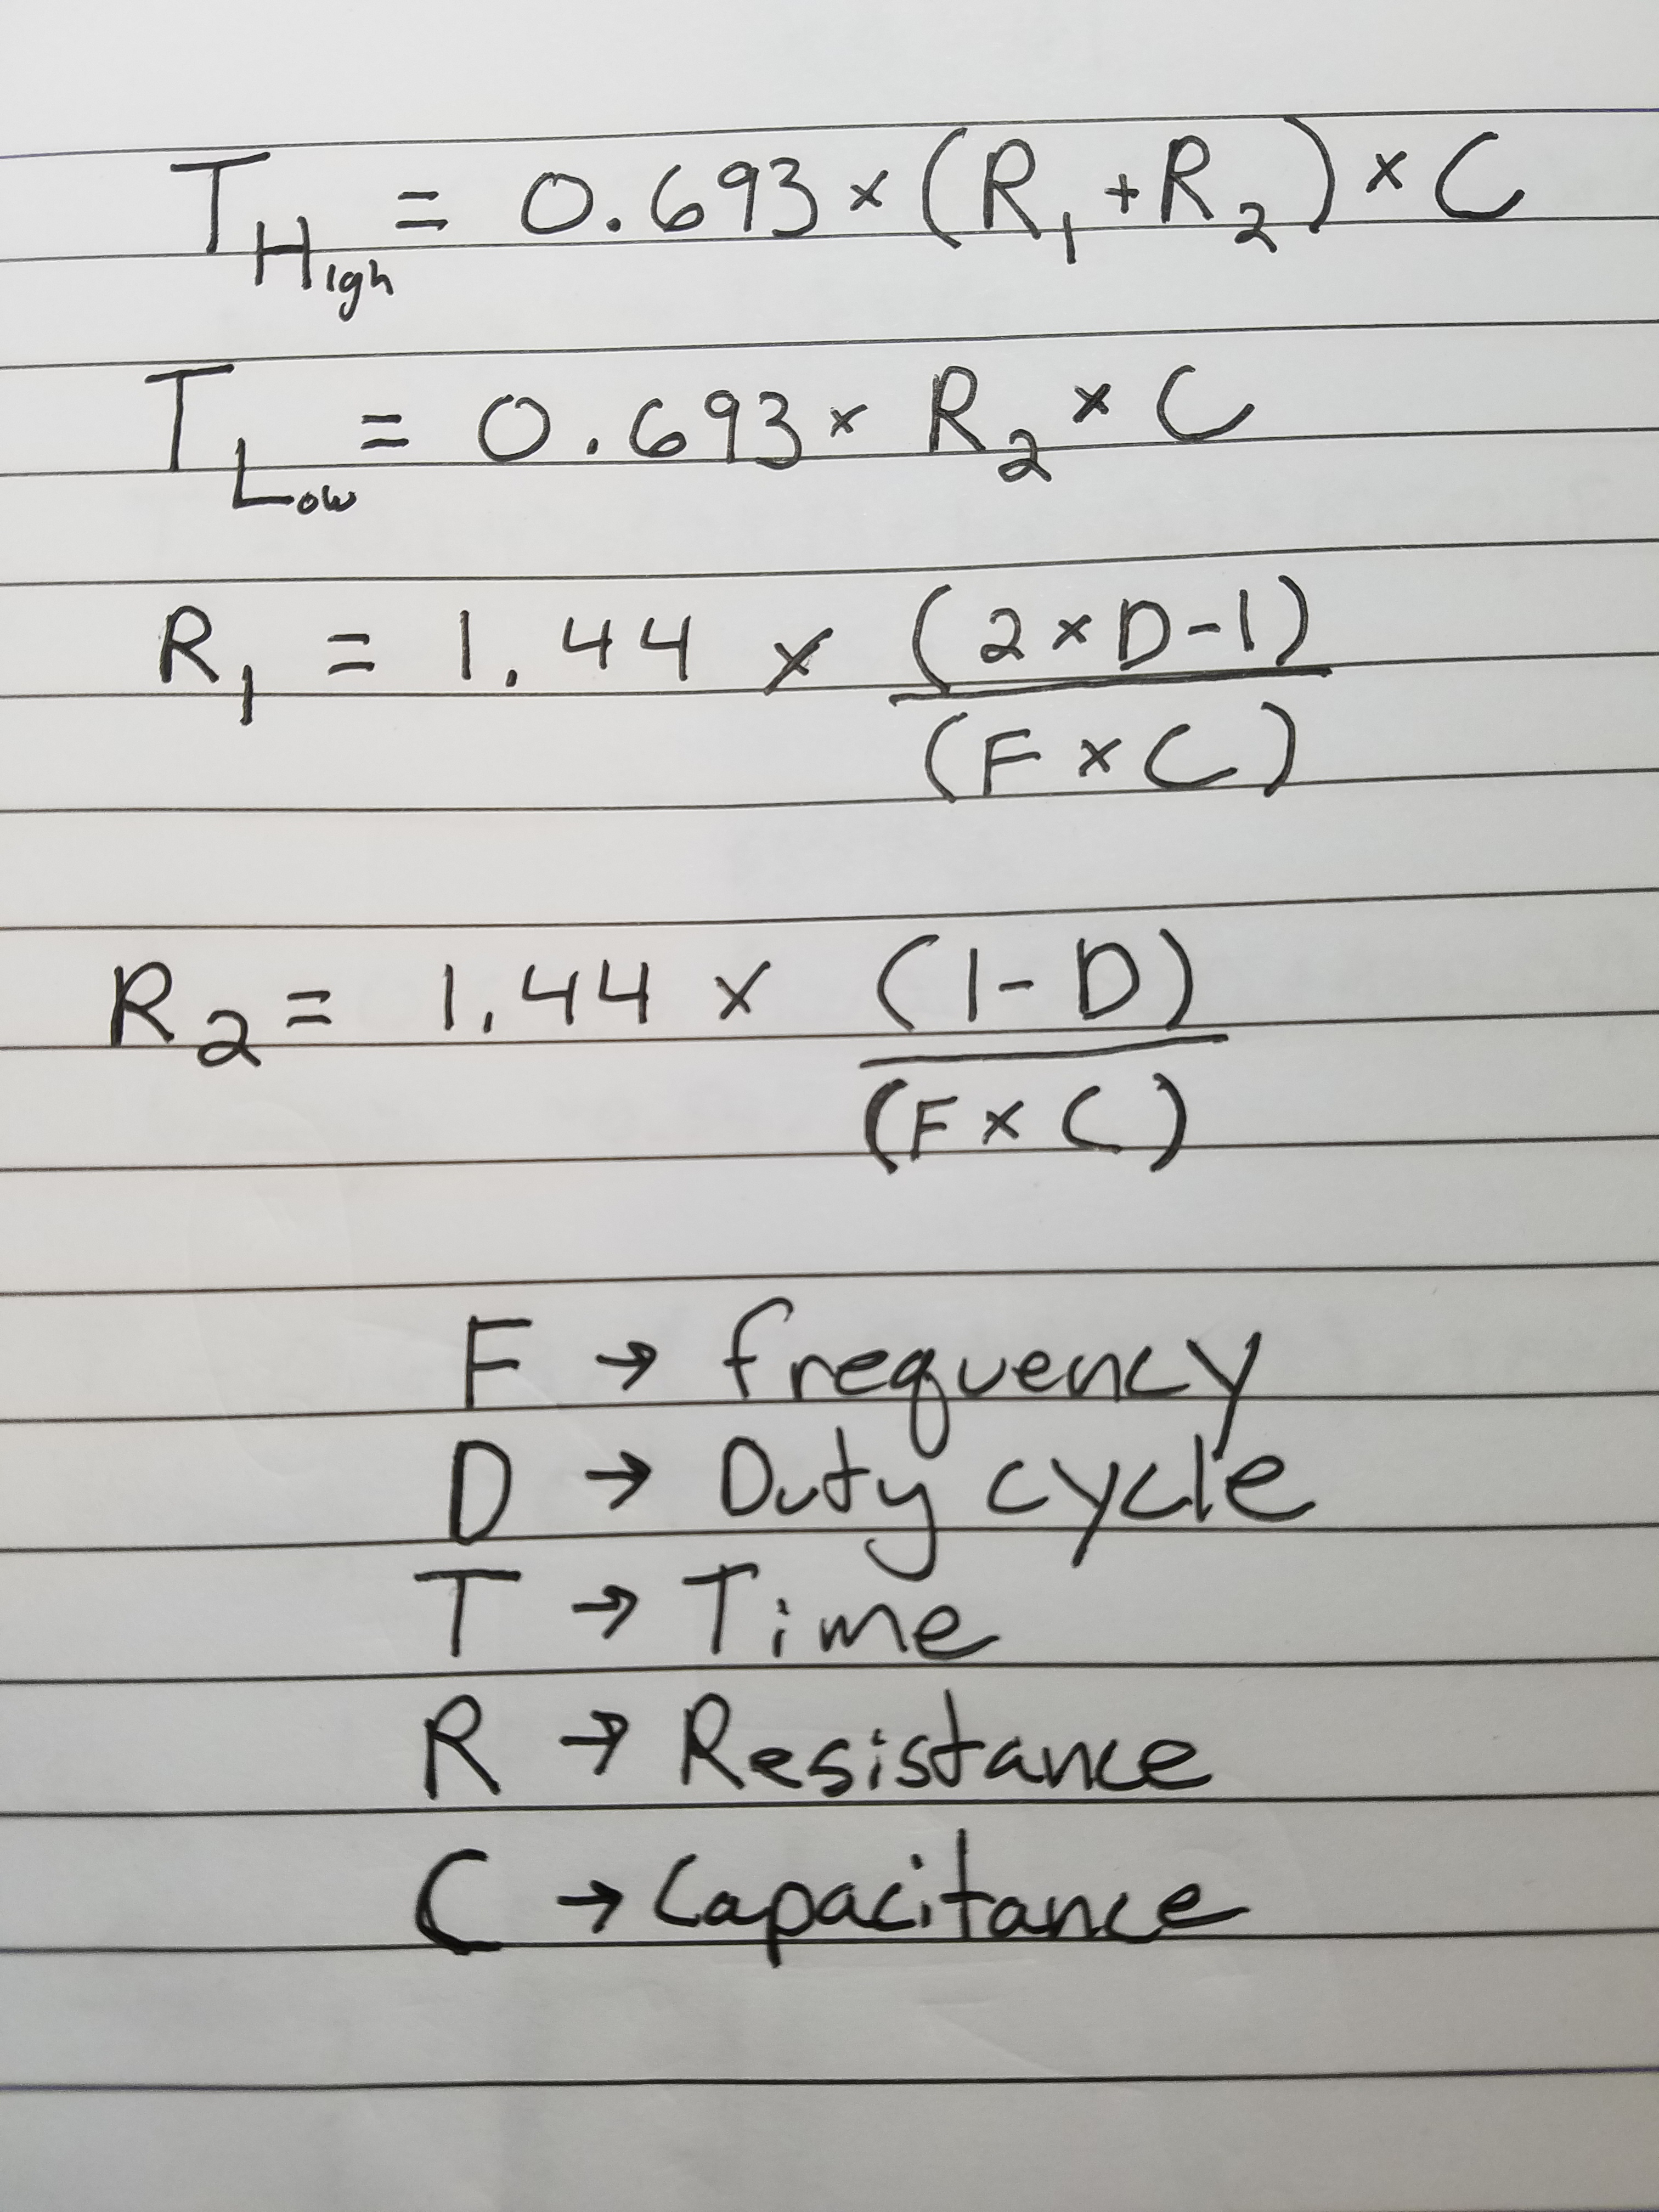 T_High = 0.693 × (R₁ + R₂) × C
T_Low = 0.693 × R₂ × C
R₁ = 1.44 × (2 × D - 1)
(F × C)
R₂ = 1.44 × (1 - D)
(F × C)
F → frequency
D → Duty cycle
T → Time
R → Resistance
C → Capacitance